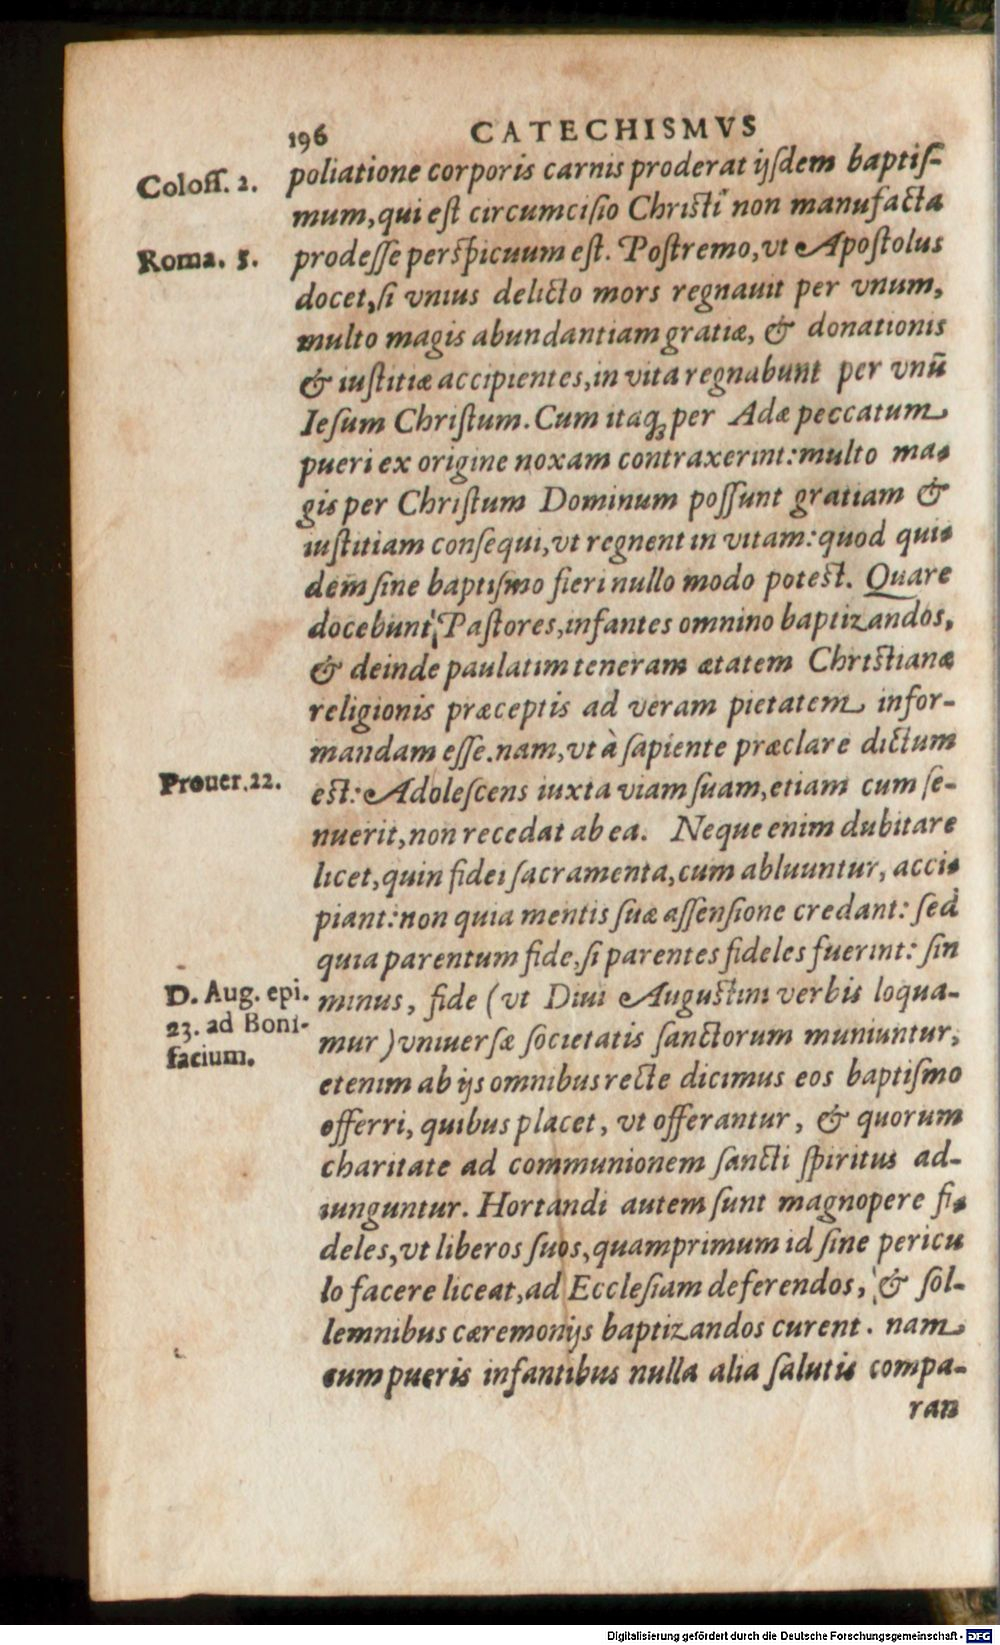 196 CATECHISMVS
Coloſſ. 2.
poliatione corporis carnis proderat ijſdem baptiſ-
mum, qui eſt circumciſio Chriſti non manufacta
Roma. 5.
prodeſſe perſpicuum eſt. Poſtremo, vt Apoſtolus
docet, ſi vnius delicto mors regnauit per vnum,
multo magis abundantiam gratiæ, & donationis
& iuſtitiæ accipientes, in vita regnabunt per vnū
Ieſum Chriſtum. Cum itaqꝫ per Adæ peccatum
pueri ex origine noxam contraxerint: multo ma-
gis per Chriſtum Dominum poſſunt gratiam &
iuſtitiam conſequi, vt regnent in vitam: quod qui-
dem ſine baptiſmo fieri nullo modo poteſt. Quare
docebunt Paſtores, infantes omnino baptizandos,
& deinde paulatim teneram ætatem Chriſtianæ
religionis præceptis ad veram pietatem infor-
mandam eſſe. nam, vt à ſapiente præclare dictum
Prouer. 22.
eſt: Adoleſcens iuxta viam ſuam, etiam cum ſe-
nuerit, non recedat ab ea. Neque enim dubitare
licet, quin fidei ſacramenta, cum abluuntur, acci-
piant: non quia mentis ſuæ aſſenſione credant: ſed
quia parentum fide, ſi parentes fideles fuerint: ſin
D. Aug. epi.
23. ad Boni-
facium.
minus, fide (vt Diui Auguſtini verbis loqua-
mur) vniuerſæ ſocietatis ſanctorum muniuntur,
etenim ab ijs omnibus recte dicimus eos baptiſmo
offerri, quibus placet, vt offerantur, & quorum
charitate ad communionem ſancti ſpiritus ad-
iunguntur. Hortandi autem ſunt magnopere fi-
deles, vt liberos ſuos, quamprimum id ſine pericu
lo facere liceat, ad Eccleſiam deferendos, & ſol-
lemnibus cæremonijs baptizandos curent. nam
cum pueris infantibus nulla alia ſalutis compa-
ran
Digitalisierung gefördert durch die Deutsche Forschungsgemeinschaft - DFG